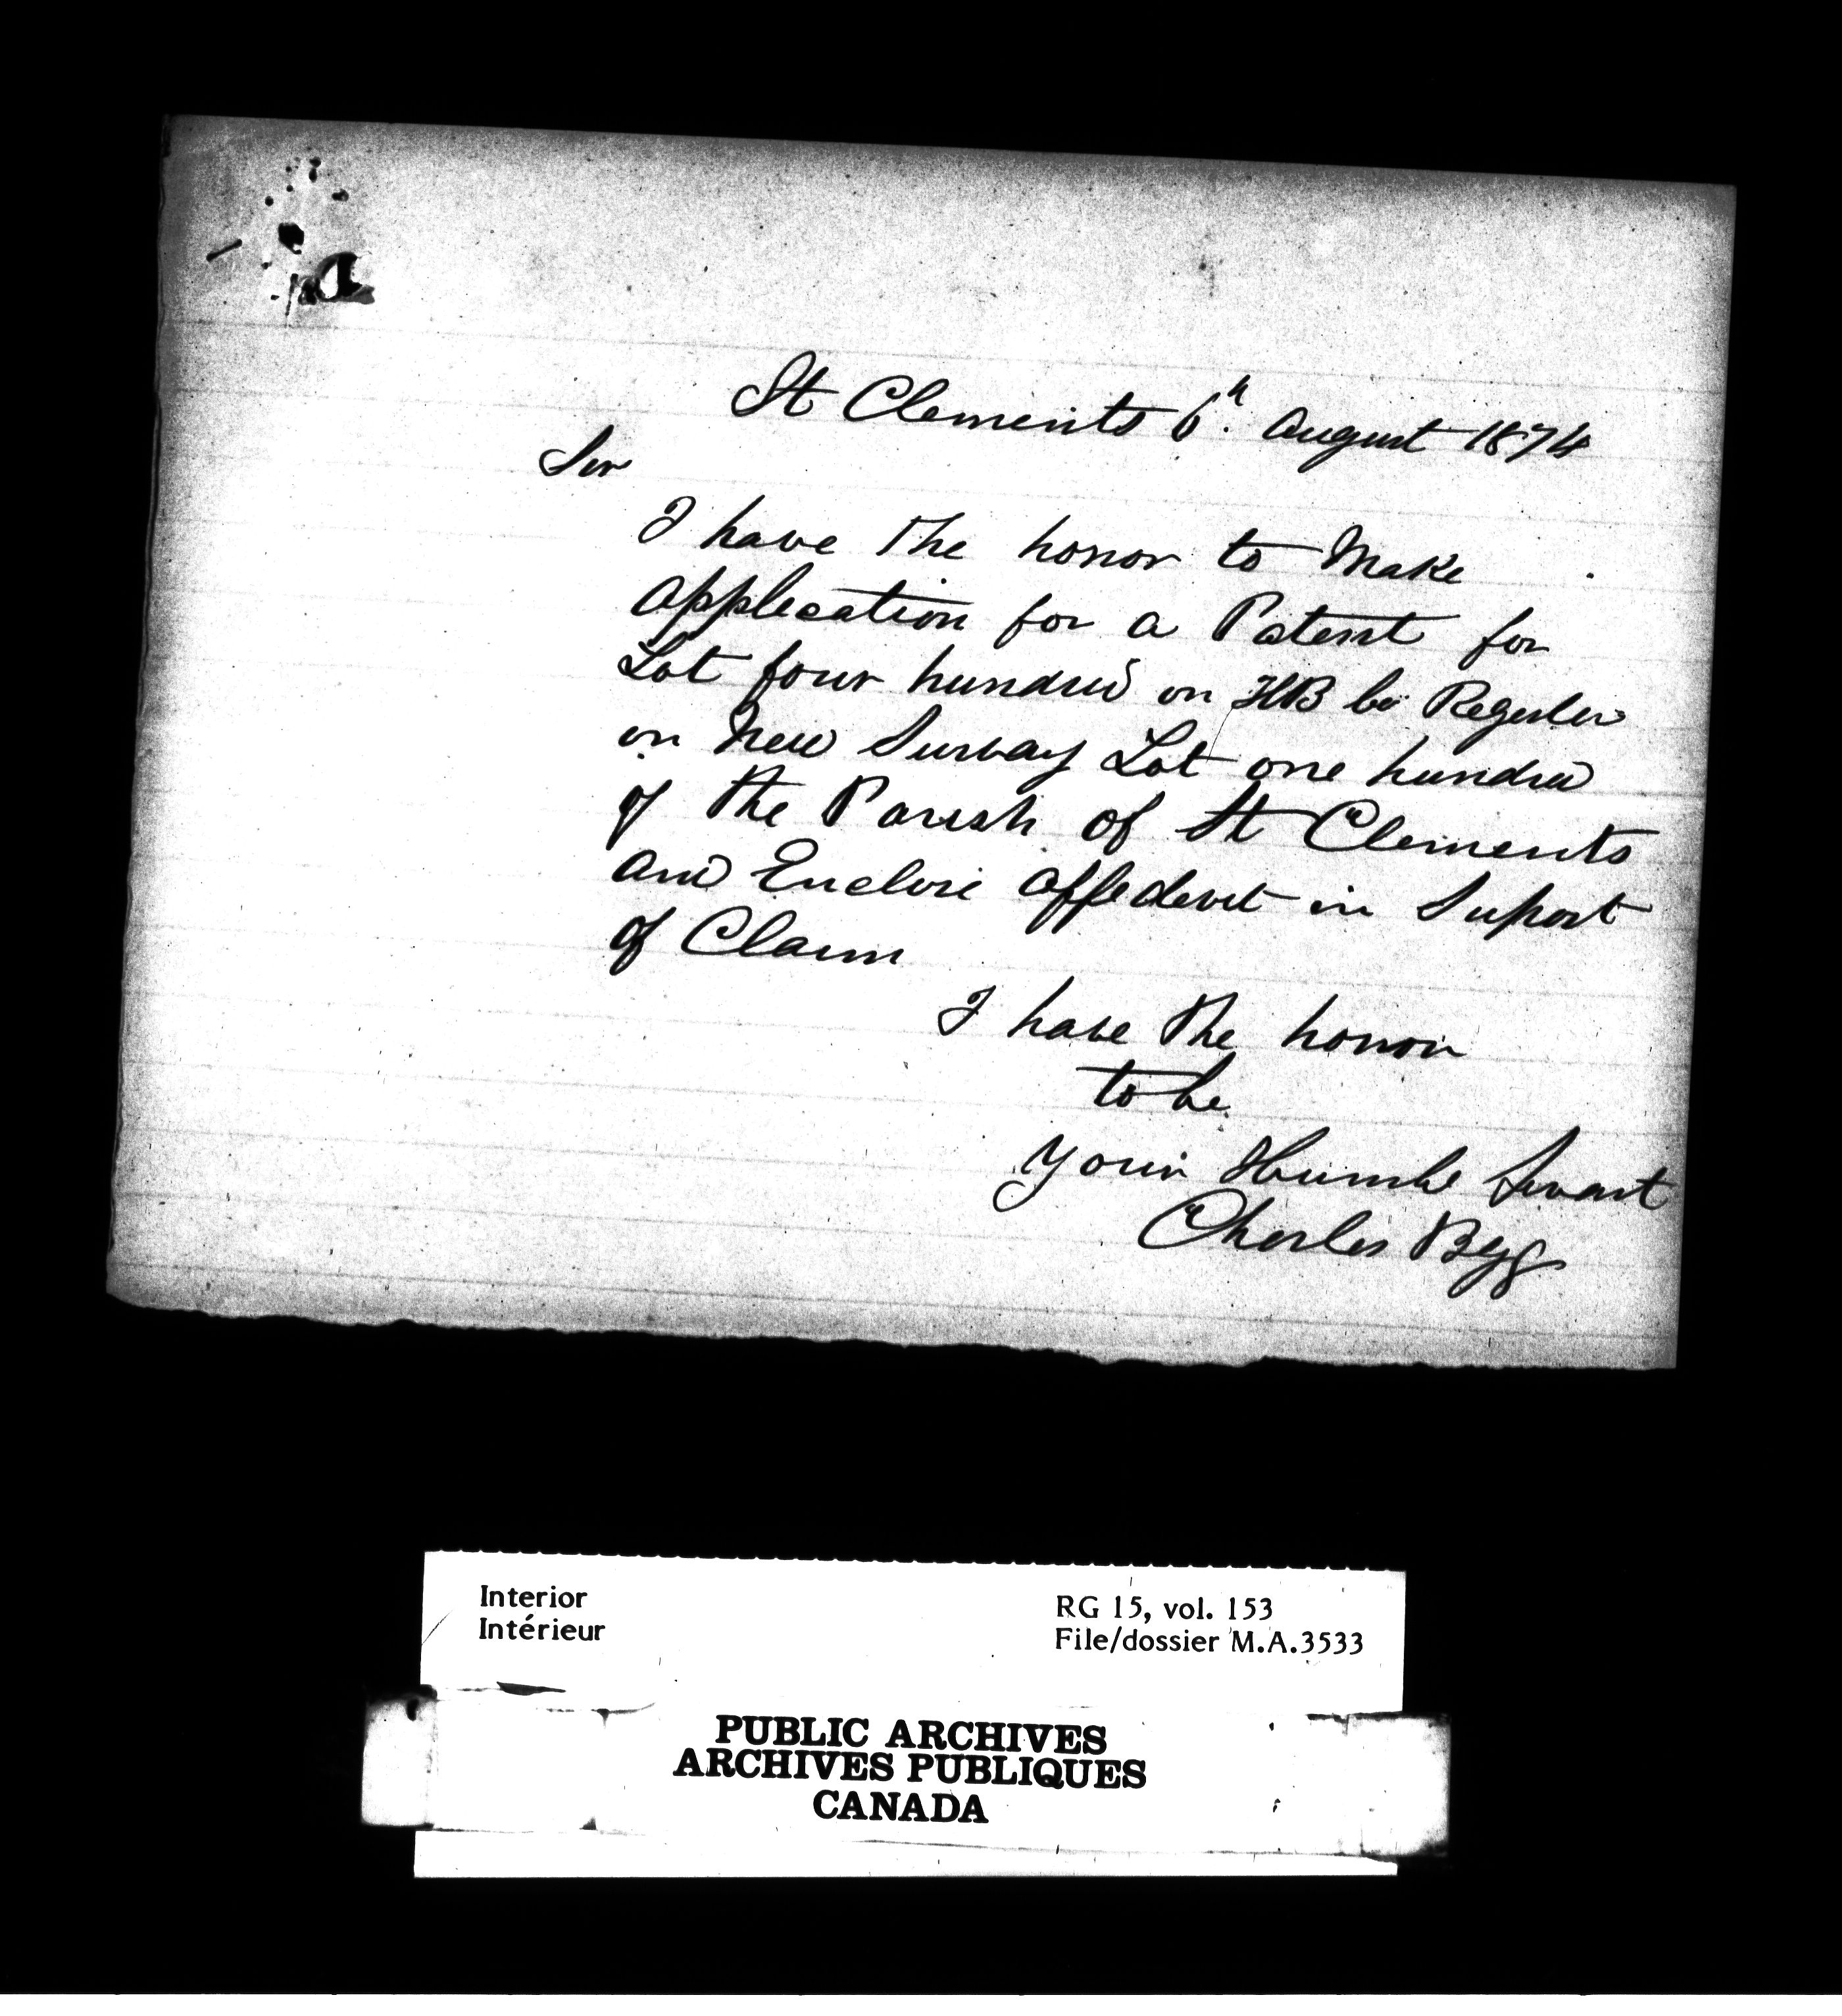 St Clements 6th. August 1874
Sir
I have The honor to Make
application for a Patent for
Lot four hundred on HB Co Register
on New Survay Lot one hundred
of the Parish of St Clements
and Enclose affedevit in Suport
of Claim
I have the honor
to be
your Humble Servant
Charles
Interior
Intérieur
RG 15, vol. 153
File/dossier M.A.3533
PUBLIC ARCHIVES
ARCHIVES PUBLIQUES
CANADA